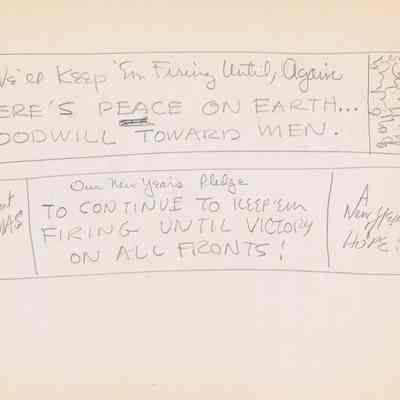 We'll Keep 'Em Firing Until, Again
ERE'S PEACE ON EARTH...
OODWILL TOWARD MEN.
Our New Year's Pledge
TO CONTINUE TO KEEP'EM
FIRING UNTIL VICTORY
ON ALL FRONTS!
A
New
HOPE